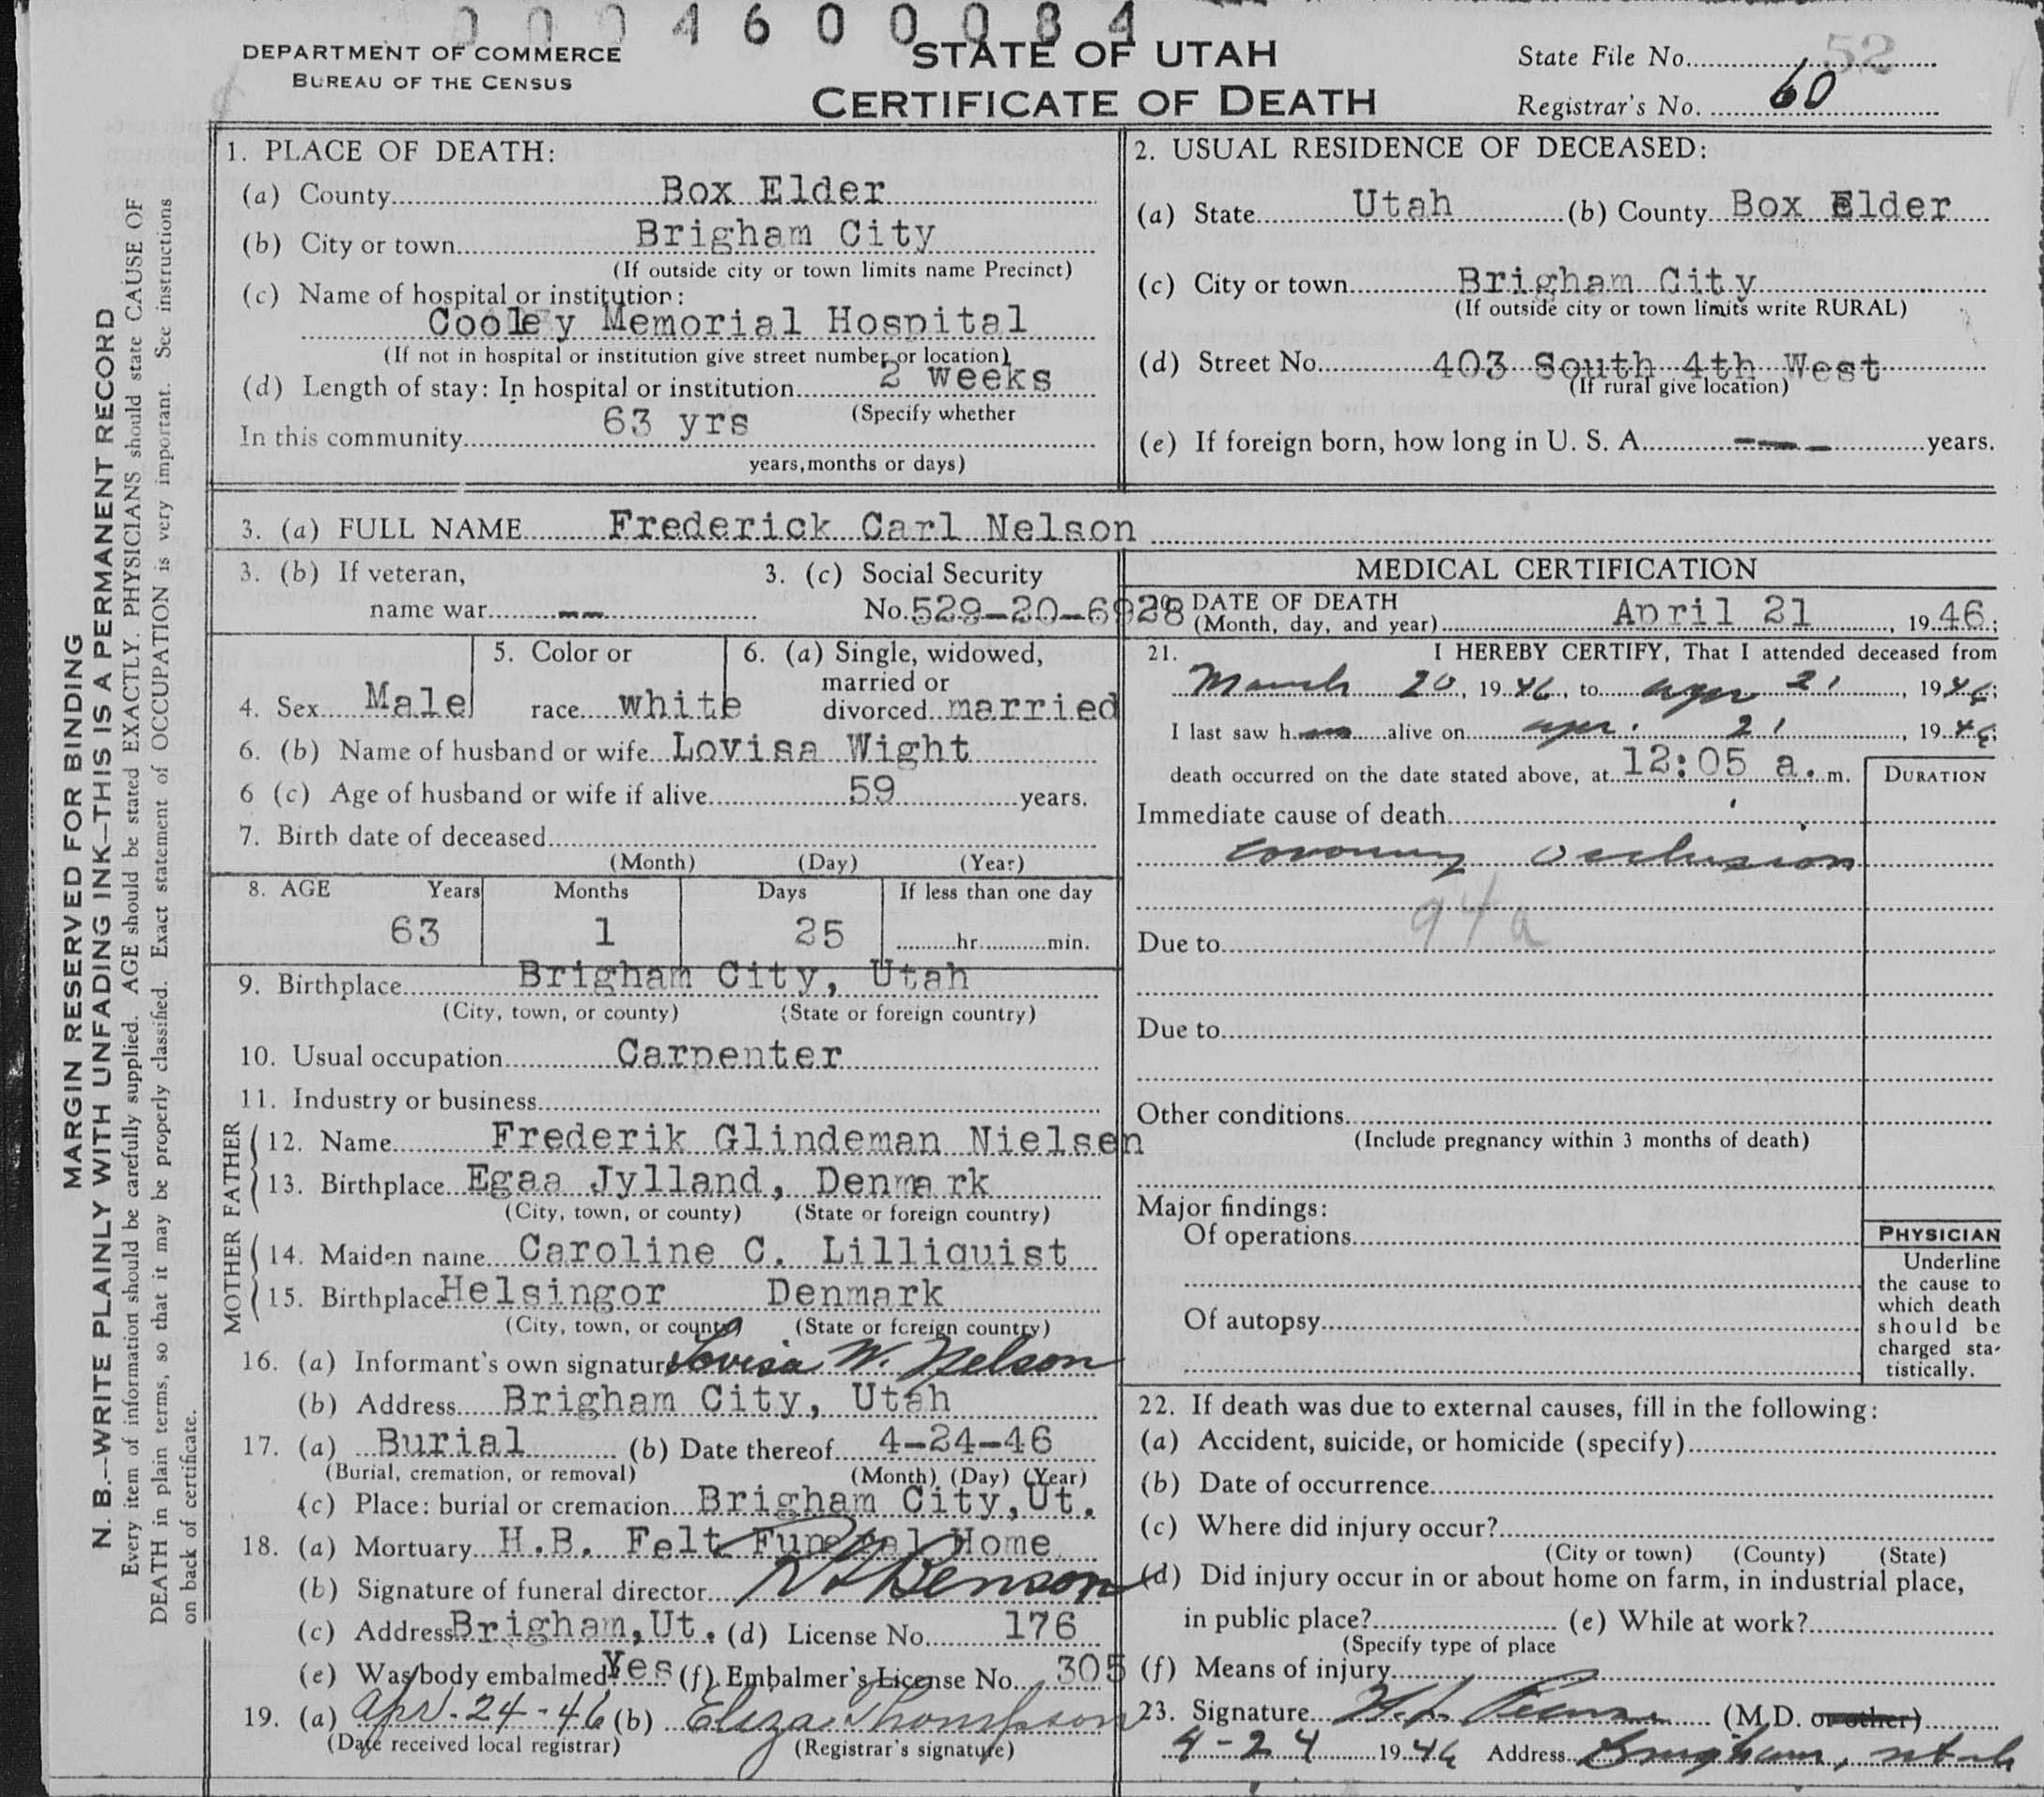 0004600084
DEPARTMENT OF COMMERCE
BUREAU OF THE CENSUS
STATE OF UTAH
CERTIFICATE OF DEATH
State File No. 52
Registrar's No. 60
MARGIN RESERVED FOR BINDING
N. B.—WRITE PLAINLY WITH UNFADING INK—THIS IS A PERMANENT RECORD
Every item of information should be carefully supplied. AGE should be stated EXACTLY. PHYSICIANS should state CAUSE OF
DEATH in plain terms, so that it may be properly classified. Exact statement of OCCUPATION is very important. See instructions
on back of certificate.
1. PLACE OF DEATH:
(a) County Box Elder
(b) City or town Brigham City
(If outside city or town limits name Precinct)
(c) Name of hospital or institution:
Cooley Memorial Hospital
(If not in hospital or institution give street number or location)
(d) Length of stay: In hospital or institution 2 weeks
(Specify whether
In this community 63 yrs
years, months or days)
2. USUAL RESIDENCE OF DECEASED:
(a) State Utah (b) County Box Elder
(c) City or town Brigham City
(If outside city or town limits write RURAL)
(d) Street No. 403 South 4th West
(If rural give location)
(e) If foreign born, how long in U. S. A. --- years.
3. (a) FULL NAME Frederick Carl Nelson
3. (b) If veteran,
name war --
3. (c) Social Security
No. 529-20-6928
4. Sex Male
5. Color or
race white
6. (a) Single, widowed,
married or
divorced married
6. (b) Name of husband or wife Lovisa Wight
6 (c) Age of husband or wife if alive 59 years.
7. Birth date of deceased
(Month) (Day) (Year)
8. AGE Years Months Days If less than one day
63 1 25 hr. min.
9. Birthplace Brigham City, Utah
(City, town, or county) (State or foreign country)
10. Usual occupation Carpenter
11. Industry or business
FATHER
12. Name Frederik Glindeman Nielsen
13. Birthplace Egaa Jylland, Denmark
(City, town, or county) (State or foreign country)
MOTHER
14. Maiden name Caroline C. Lilliquist
15. Birthplace Helsingor Denmark
(City, town, or county) (State or foreign country)
16. (a) Informant's own signature Lovisa W. Nelson
(b) Address Brigham City, Utah
17. (a) Burial (b) Date thereof 4-24-46
(Burial, cremation, or removal) (Month) (Day) (Year)
(c) Place: burial or cremation Brigham City, Ut.
18. (a) Mortuary H.B. Felt Funeral Home
(b) Signature of funeral director Benson
(c) Address Brigham, Ut. (d) License No. 176
(e) Was body embalmed? Yes (f) Embalmer's License No. 305
19. (a) Apr. 24-46 (b) Eliza Thompson
(Date received local registrar) (Registrar's signature)
MEDICAL CERTIFICATION
20. DATE OF DEATH
(Month, day, and year) April 21, 1946;
21. I HEREBY CERTIFY, That I attended deceased from
March 20, 1946, to apr 21, 1946;
I last saw h alive on apr. 21, 1946;
death occurred on the date stated above, at 12:05 a.m.
DURATION
Immediate cause of death
coronary occlusion
94a
Due to
Due to
Other conditions
(Include pregnancy within 3 months of death)
Major findings:
Of operations
Of autopsy
PHYSICIAN
Underline
the cause to
which death
should be
charged sta-
tistically.
22. If death was due to external causes, fill in the following:
(a) Accident, suicide, or homicide (specify)
(b) Date of occurrence
(c) Where did injury occur?
(City or town) (County) (State)
(d) Did injury occur in or about home on farm, in industrial place,
in public place? (e) While at work?
(Specify type of place
(f) Means of injury
23. Signature (M.D. or other)
4-24 1946 Address Brigham, Utah